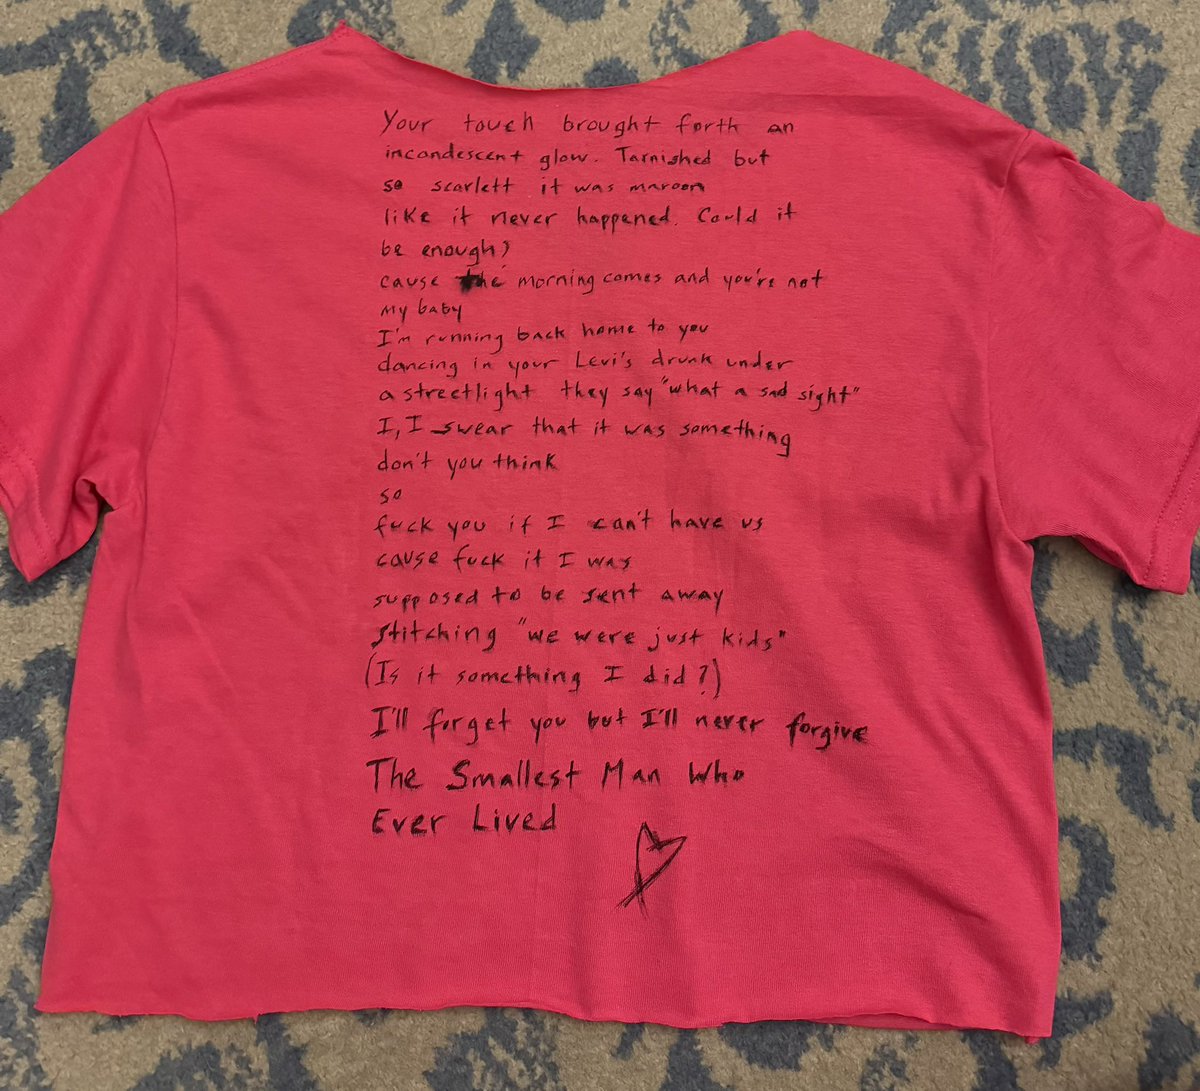 Your touch brought forth an
incandescent glow. Tarnished but
so scarlett it was maroon
like it never happened. Could it
be enough?
cause the morning comes and you're not
my baby
I'm running back home to you
dancing in your Levi's drunk under
a streetlight they say "what a sad sight"
I, I swear that it was something
don't you think
so
fuck you if I can't have us
cause fuck it I was
supposed to be sent away
stitching "we were just kids"
(Is it something I did?)
I'll forget you but I'll never forgive
The Smallest Man Who
Ever Lived